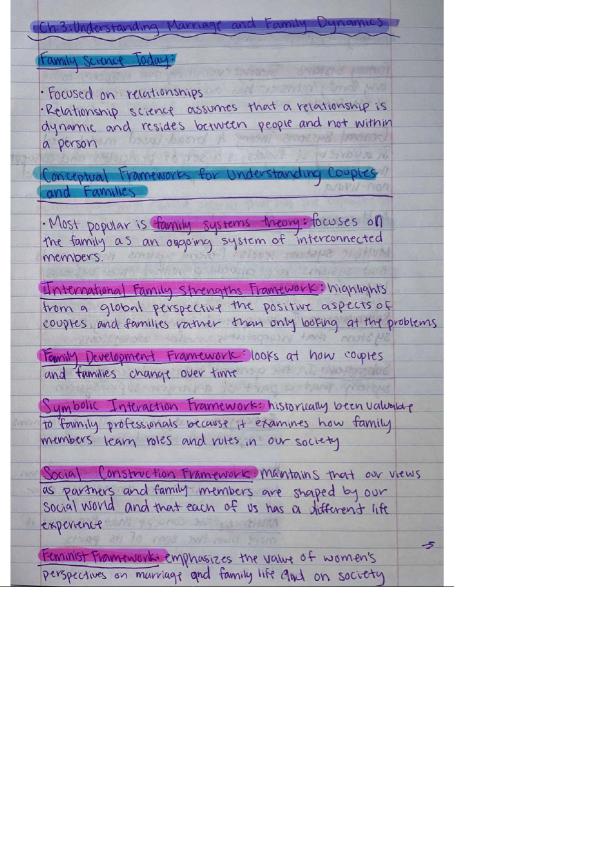 Ch. 3: Understanding Marriage and Family Dynamics
Family Science Today:
• Focused on relationships
• Relationship science assumes that a relationship is
dynamic and resides between people and not within
a person
Conceptual Frameworks for Understanding Couples
and Families
• Most popular is family systems theory: focuses on
the family as an ongoing system of interconnected
members.
International Family Strengths Framework: highlights
from a global perspective the positive aspects of
couples and families rather than only looking at the problems
Family Development Framework: looks at how couples
and families change over time
Symbolic Interaction Framework: historically been valuable
to family professionals because it examines how family
members learn roles and rules in our society
Social Construction Framework: maintains that our views
as partners and family members are shaped by our
social world and that each of us has a different life
experience
Feminist Framework: emphasizes the value of women's
perspectives on marriage and family life and on society